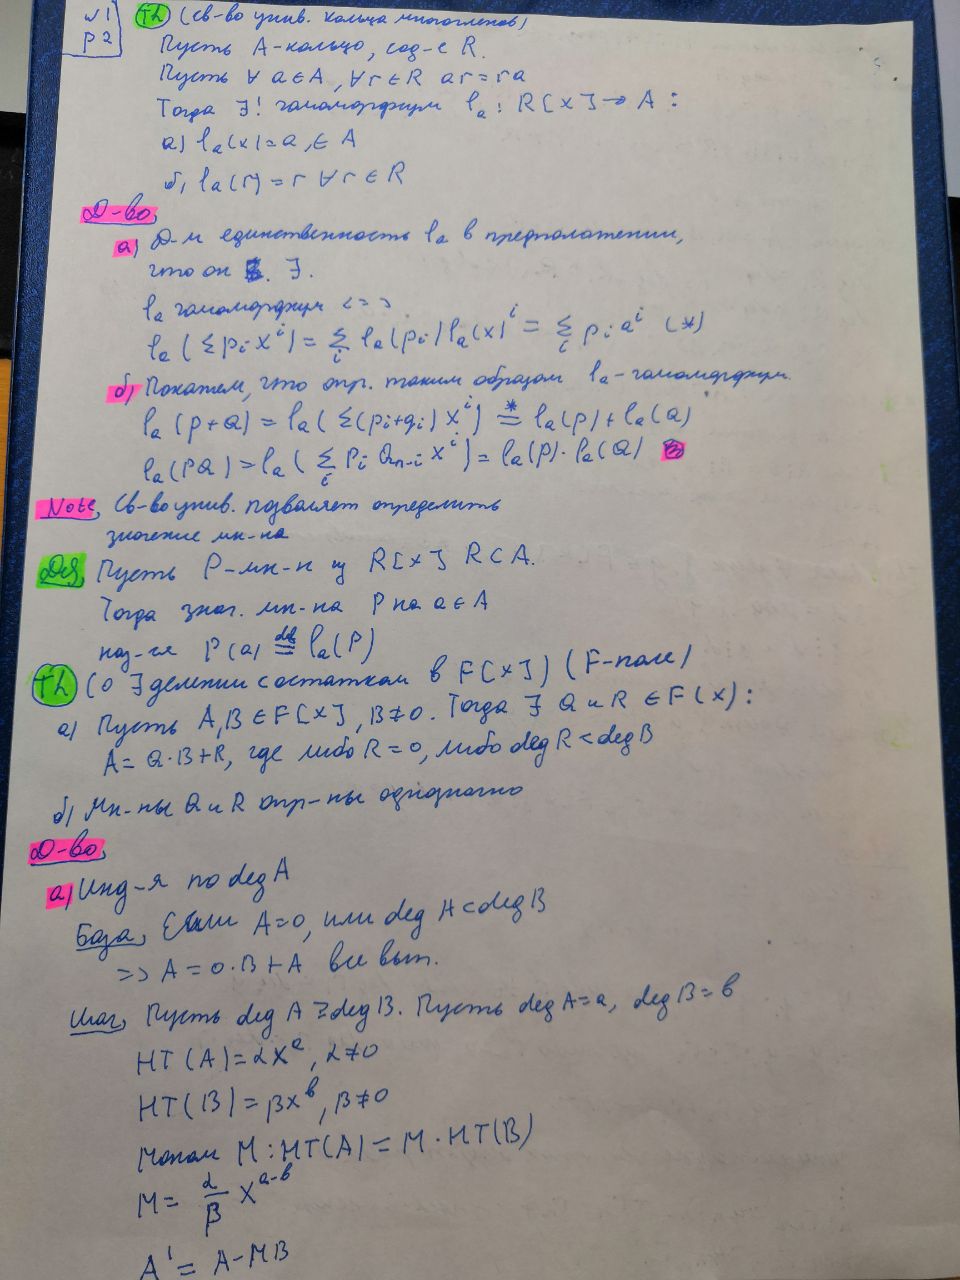 №1
p2
Th (св-во унив. кольца многочленов)
Пусть A-кольцо, сод-е R.
Пусть ∀ a∈A, ∀r∈R ar=ra
Тогда ∃! гомоморфизм lₐ: R[x]→A:
а) lₐ(x)=a, ∈ A
б) lₐ(r)=r ∀r∈R
Д-во
а) Д-м единственность lₐ в предположении,
что он ∃.
lₐ гомоморфизм <=>
lₐ(Σpᵢxⁱ)=Σᵢ lₐ(pᵢ)lₐ(x)ⁱ = Σᵢ pᵢaⁱ (*)
б) Покажем, что опр. таким образом lₐ-гомоморфизм.
lₐ(P+Q)=lₐ(Σ(pᵢ+qᵢ)xⁱ) =* lₐ(P)+lₐ(Q)
lₐ(PQ)=lₐ(Σᵢ Pᵢ Qₙ₋ᵢ xⁱ)=lₐ(P)·lₐ(Q)
Note, св-во унив. позволяет определить
значение мн-на
Def Пусть P-мн-н из R[x] R⊂A.
Тогда знач. мн-на P на a∈A
наз-ся P(a) =def lₐ(P)
Th (о ∃ делении с остатком в F[x]) (F-поле)
а) Пусть A,B∈F[x], B≠0. Тогда ∃ Q и R ∈F(x):
A=Q·B+R, где либо R=0, либо deg R<deg B
б) Мн-ны Q и R опр-ны однозначно
Д-во,
а) Инд-я по deg A
База, Если A=0, или deg A<deg B
=> A=0·B+A все вып.
Шаг, Пусть deg A ≥ deg B. Пусть deg A=a, deg B=b
HT(A)=αxᵃ, α≠0
HT(B)=βxᵇ, β≠0
Моном M: HT(A)=M·HT(B)
M= α/β xᵃ⁻ᵇ
A'=A-MB